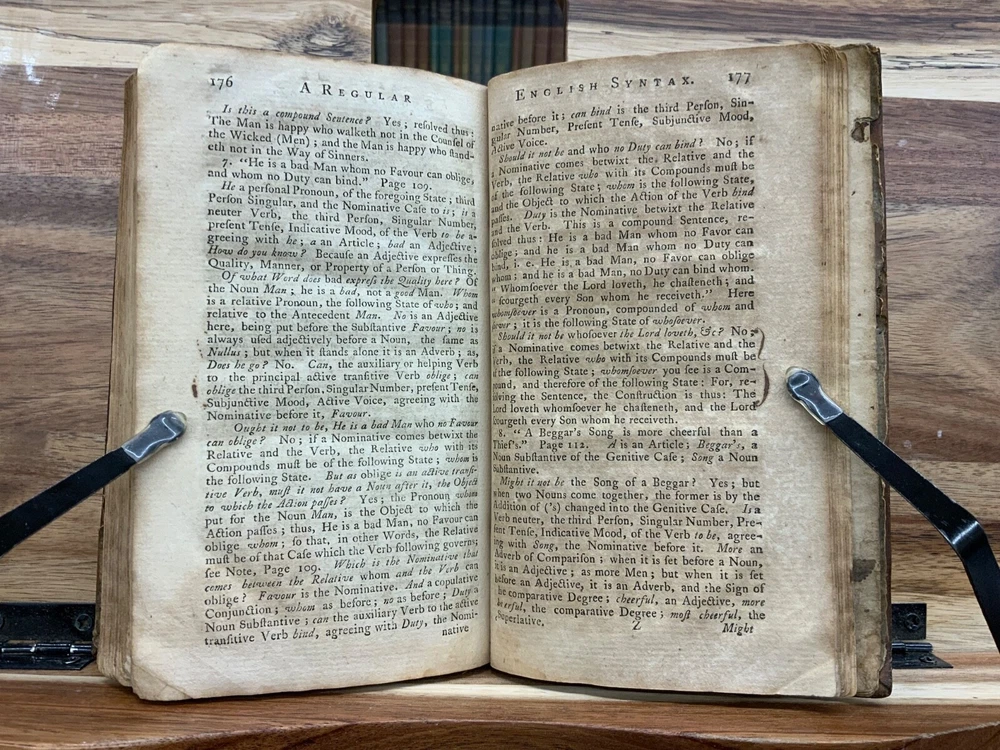 176 A REGULAR
Is this a compound Sentence? Yes; reſolved thus:
The Man is happy who walketh not in the Counſel of
the Wicked (Men); and the Man is happy who ſtand-
eth not in the Way of Sinners.
7. "He is a bad Man whom no Favour can oblige,
and whom no Duty can bind." Page 109.
He a perſonal Pronoun, of the foregoing State; third
Perſon Singular, and the Nominative Caſe to is; is a
neuter Verb, the third Perſon, Singular Number,
preſent Tenſe, Indicative Mood, of the Verb to be a-
greeing with he; a an Article; bad an Adjective;
How do you know? Becauſe an Adjective expreſſes the
Quality, Manner, or Property of a Perſon or Thing.
Of what Word does bad expreſs the Quality here? Of
the Noun Man; he is a bad, not a good Man. Whom
is a relative Pronoun, the following State of who; and
relative to the Antecedent Man. No is an Adjective
here, being put before the Subſtantive Favour; no is
always uſed adjectively before a Noun, the ſame as
Nullus; but when it ſtands alone it is an Adverb; as,
Does he go? No. Can, the auxiliary or helping Verb
to the principal active tranſitive Verb oblige; can
oblige the third Perſon, Singular Number, preſent Tenſe,
Subjunctive Mood, Active Voice, agreeing with the
Nominative before it, Favour.
Ought it not to be, He is a bad Man who no Favour
can oblige? No; if a Nominative comes betwixt the
Relative and the Verb, the Relative who with its
Compounds muſt be of the following State; whom is
the following State. But as oblige is an active tranſi-
tive Verb, muſt it not have a Noun after it, the Object
to which the Action paſſes? Yes; the Pronoun whom
put for the Noun Man, is the Object to which the
Action paſſes; thus, He is a bad Man, no Favour can
oblige whom; ſo that, in other Words, the Relative
muſt be of that Caſe which the Verb following governs,
ſee Note, Page 109. Which is the Nominative that
comes between the Relative whom and the Verb can
oblige? Favour is the Nominative. And a copulative
Conjunction; whom as before; no as before; Duty a
Noun Subſtantive; can the auxiliary Verb to the active
tranſitive Verb bind, agreeing with Duty, the Nomi-
native
ENGLISH SYNTAX. 177
native before it; can bind is the third Perſon, Sin-
gular Number, Preſent Tenſe, Subjunctive Mood,
Active Voice.
Should it not be and who no Duty can bind? No; if
a Nominative comes betwixt the Relative and the
Verb, the Relative who with its Compounds muſt be
of the following State; whom is the following State,
and the Object to which the Action of the Verb bind
paſſes. Duty is the Nominative betwixt the Relative
and the Verb. This is a compound Sentence, re-
ſolved thus: He is a bad Man whom no Favor can
oblige; and he is a bad Man whom no Duty can
bind, i. e. He is a bad Man, no Favor can oblige
whom; and he is a bad Man, no Duty can bind whom.
"Whomſoever the Lord loveth, he chaſteneth; and
"ſcourgeth every Son whom he receiveth." Here
whomſoever is a Pronoun, compounded of whom and
ſoever; it is the following State of whoſoever.
Should it not be whoſoever the Lord loveth, &c? No;
if a Nominative comes betwixt the Relative and the
Verb, the Relative who with its Compounds muſt be
of the following State; whomſoever you ſee is a Com-
pound, and therefore of the following State: For, re-
ſolving the Sentence, the Conſtruction is thus: The
Lord loveth whomſoever he chaſteneth, and the Lord
ſcourgeth every Son whom he receiveth.
8. "A Beggar's Song is more cheerful than a
Thief's." Page 112. A is an Article; Beggar's, a
Noun Subſtantive of the Genitive Caſe; Song a Noun
Subſtantive.
Might it not be the Song of a Beggar? Yes; but
when two Nouns come together, the former is by the
Addition of ('s) changed into the Genitive Caſe. Is a
Verb neuter, the third Perſon, Singular Number, Pre-
ſent Tenſe, Indicative Mood, of the Verb to be, agree-
ing with Song, the Nominative before it. More an
Adverb of Compariſon; when it is ſet before a Noun,
it is an Adjective; as more Men; but when it is ſet
before an Adjective, it is an Adverb, and the Sign of
the comparative Degree; cheerful, an Adjective, more
cheerful, the comparative Degree; moſt cheerful, the
Superlative.
Z Might